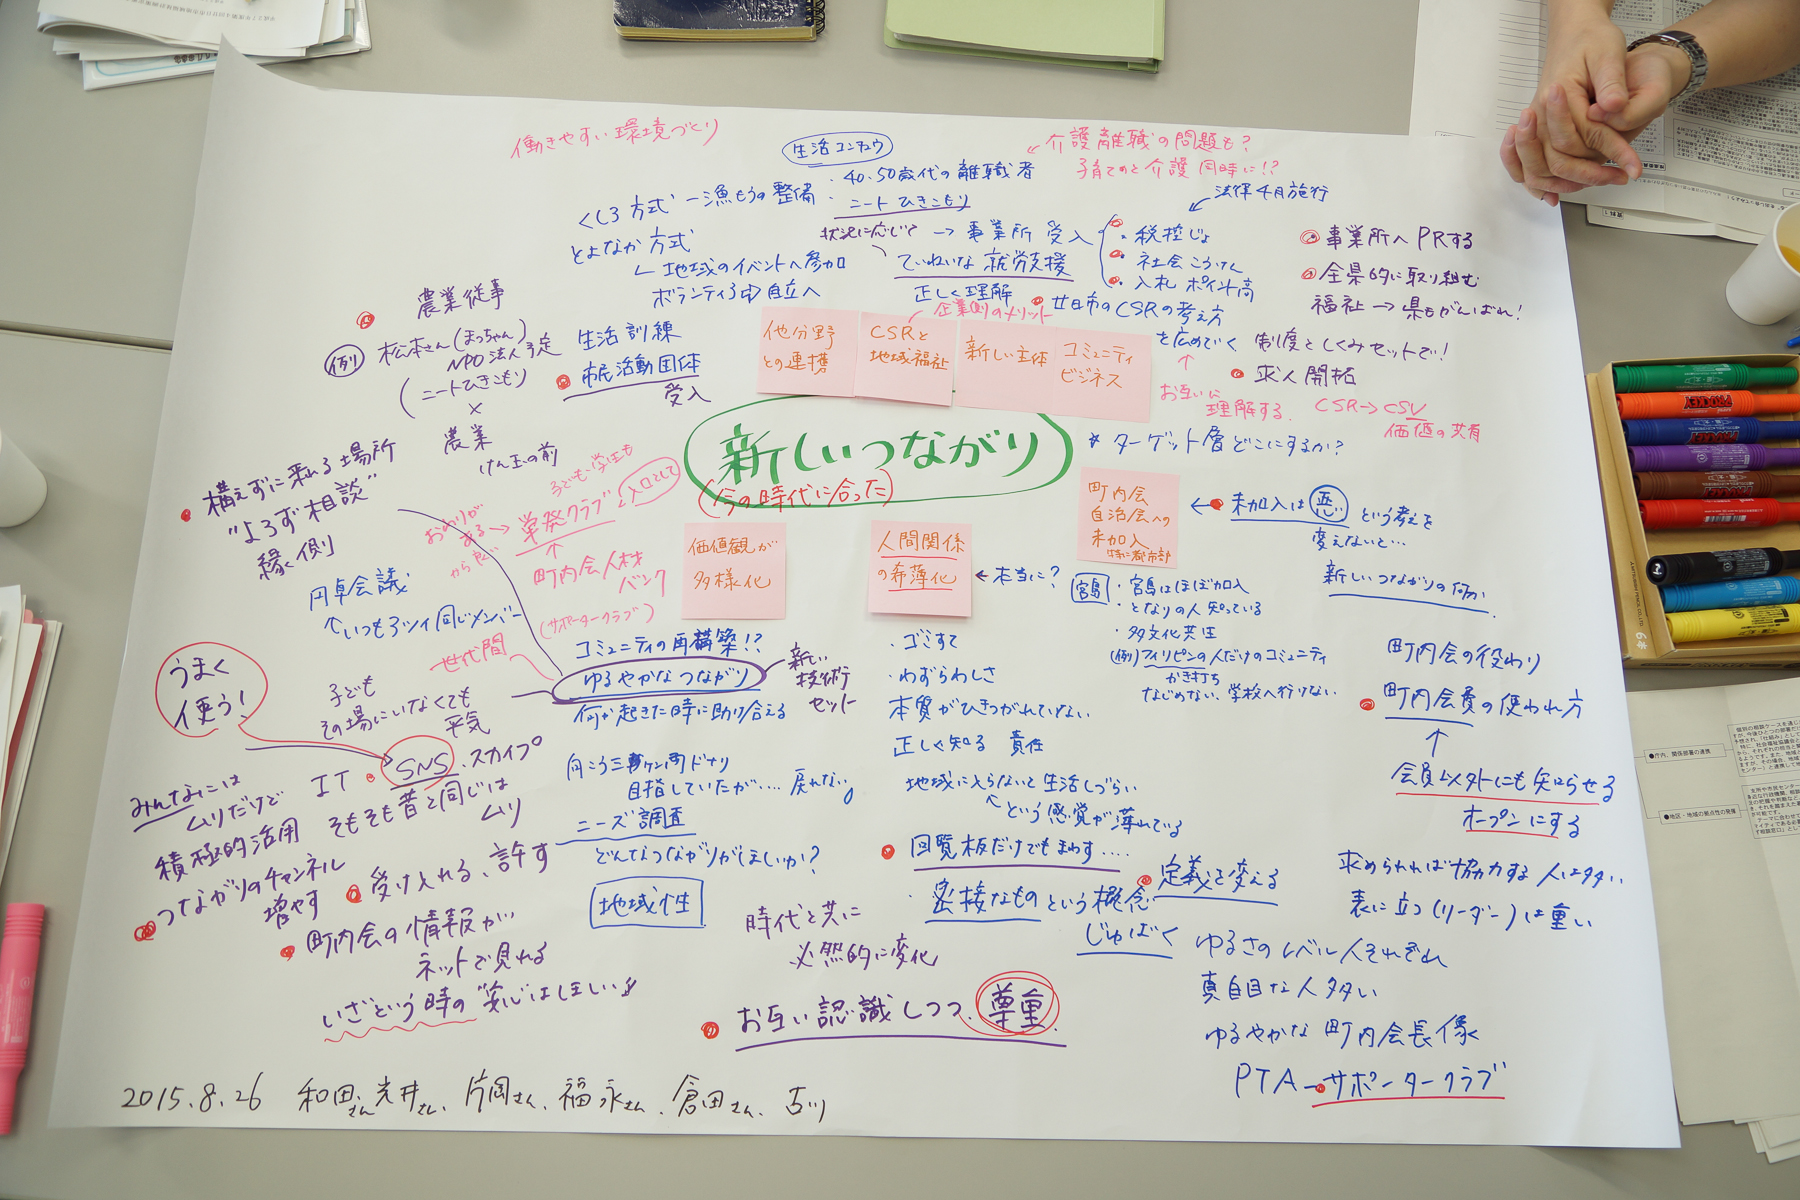 働きやすい環境づくり
生活コンキュウ
・40.50歳代の離職者
・ニート ひきこもり
← 介護離職の問題も?
子育てのと介護 同時に!?
くしろ方式 ー漁もうの整備
とよなか方式
← 地域のイベントへ参加
ボランティア⇨自立へ
状況に応じて
→ 事業所 受入
ていねいな就労支援
正しく理解
法律4月施行
・税控じょ
・社会こうけん
・入札 ポイント高
事業所へPRする
全県的に取り組む
福祉→県もがんばれ!
企業側のメリット
廿日市のCSRの考え方
を広めていく
制度としくみセットで!
求人開拓
お互いに
理解する.
CSR→CSV
価値の共有
農業従事
例
松本さん(まっちゃん)
NPO法人予定
ニートひきこもり
×
農業
けん玉の前
生活訓練
市民活動団体
受入
他分野
との連携
CSRと
地域福祉
新しい主体
コミュニティ
ビジネス
新しいつながり
(今の時代に合った)
* ターゲット層どこにするか?
構えずに来れる場所
"よろず相談"
縁側
円卓会議
↑いつも同じメンバー
子ども・学生も
入口として
おわりが
ある→
から良い
単発クラブ
↑
町内会人材
バンク
(サポータークラブ)
世代間
価値観が
多様化
人間関係
の希薄化
← 本当に?
町内会
自治会への
未加入
特に都市部
← 未加入は悪 という考えを
変えないと…
新しいつながりの
宮島
・宮島はほぼ加入
・となりの人 知っている
・多文化共生
(例)フィリピンの人だけのコミュニティ
かき打ち
なじめない、学校へ行けない
コミュニティの再構築!?
ゆるやかなつながり
何か起きた時に助け合える
新しい
技術
セット
うまく
使う!
子ども
その場にいなくても
平気
IT
SNS.スカイプ
そもそも昔と同じは
ムリ
みんなには
ムリだけど
積極的活用
つながりのチャンネル
増やす
受け入れる、許す
町内会の情報が
ネットで見れる
いざという時の"安心"はほしい
向こう三軒両ドナリ
目指していたが…. 戻れない
ニーズ調査
どんなつながりがほしいか?
地域性
・ゴミすて
・わずらわしさ
本質がひきつがれていない
正しく知る 責任
地域に入らないと生活しづらい
↑という感覚が薄れている
回覧板だけでもまわす….
・密接なものという概念
定義を変える
じゅばく
時代と共に
必然的に変化
お互い認識しつつ、尊重.
町内会の役わり
町内会費の使われ方
↑
会員以外にも知らせる
オープンにする
求められれば協力する人は多い
表に立つ(リーダー)は重い
ゆるさのレベル人それぞれ
真面目な人多い
ゆるやかな町内会長像
PTA→サポータークラブ
2015.8.26 和田さん、光井さん、片岡さん、福永さん、倉田さん、古川
●庁内、関係部署の連携
●地区・地域の観点性の発揮
PROCKEY